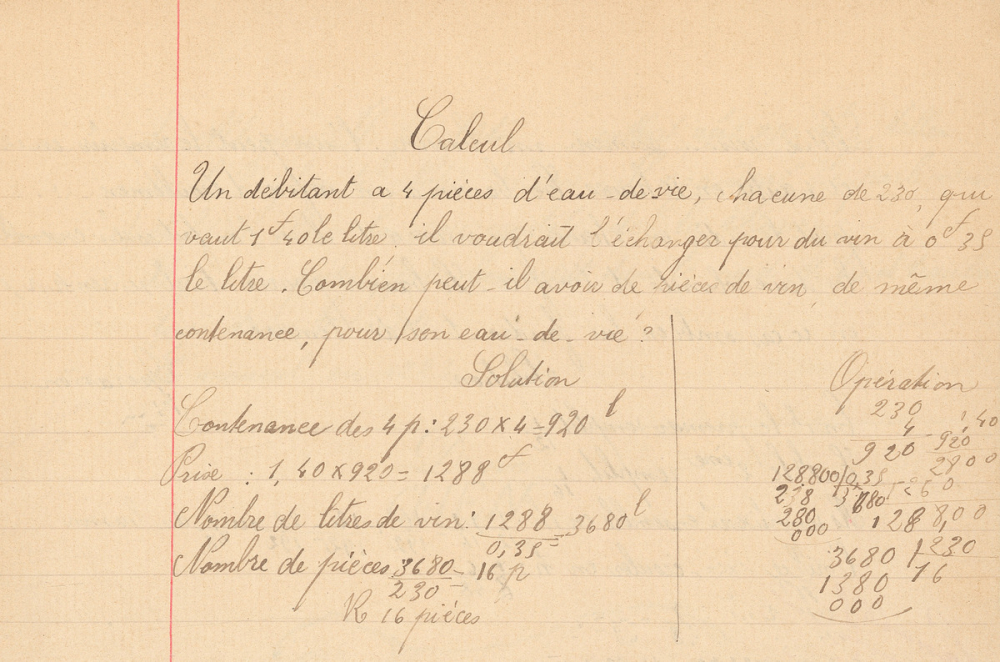 Calcul
Un débitant a 4 pièces d'eau-de-vie, chacune de 230, qui
vaut 1f 40 le litre. il voudrait l'échanger pour du vin à 0f 35
le litre. Combien peut-il avoir de pièces de vin, de même
contenance, pour son eau-de-vie?
Solution
Contenance des 4 p: 230 x 4 = 920 l
Prise : 1,40 x 920 = 1288 f
Nombre de litres de vin: 1288 = 3680 l
0,35
Nombre de pièces 3680 = 16 p
230
R 16 pièces
Opération
230
4
920
1,40
920
2800
1260
1288,00
128800 0,35
238 3680
280
000
3680 230
1380 16
000